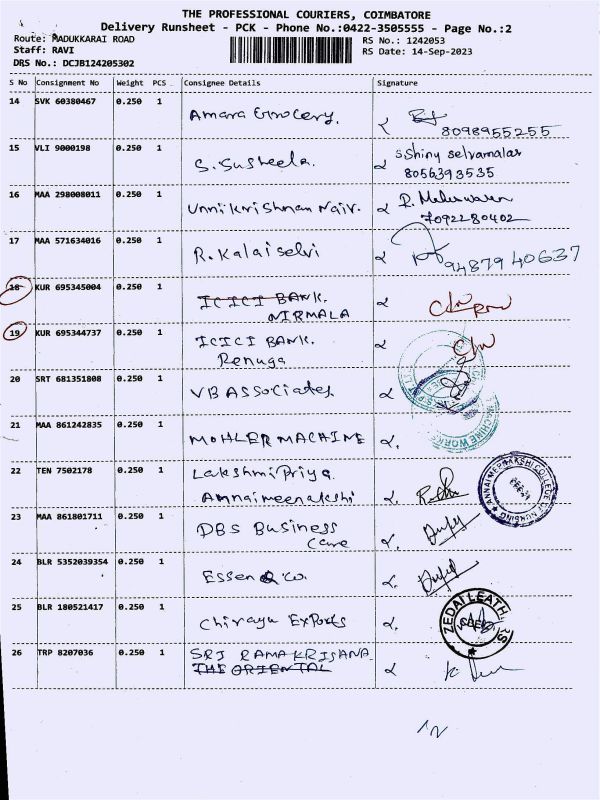 THE PROFESSIONAL COURIERS, COIMBATORE
Delivery Runsheet - PCK - Phone No.:0422-3505555 - Page No.:2
Route: MADUKKARAI ROAD
RS No.: 1242053
Staff: RAVI
RS Date: 14-Sep-2023
DRS No.: DCJB124205302
S No Consignment No Weight PCS Consignee Details Signature
14 SVK 60380467 0.250 1 Amara Grocery.
8098955255
15 VLI 9000198 0.250 1 S. Susheela. S Shiny selvamalar
8056393535
16 MAA 298008011 0.250 1 Unni Krishnan Nair. R. Maheswaren
7092280402
17 MAA 571634016 0.250 1 R. Kalaiselvi
9487940637
18 KUR 695345004 0.250 1 ICICI BANK.
NIRMALA
19 KUR 695344737 0.250 1 ICICI BANK.
Renuga
20 SRT 681351808 0.250 1 VB ASSociates.
21 MAA 861242835 0.250 1 MOHLER MACHINE
MACHINE WORKS
22 TEN 7502178 0.250 1 Lakshmi Priya
Annaimeenakshi
ANNAI MEENAKSHI COLLEGE OF NURSING
23 MAA 861801711 0.250 1 DBS Business
Care
24 BLR 5352039354 0.250 1 Essen & Co.
25 BLR 180521417 0.250 1 Chirayu Exports
ZEDAI LEATHERS
26 TRP 8207036 0.250 1 SRI RAMAKRISANA
THE ORIENTAL